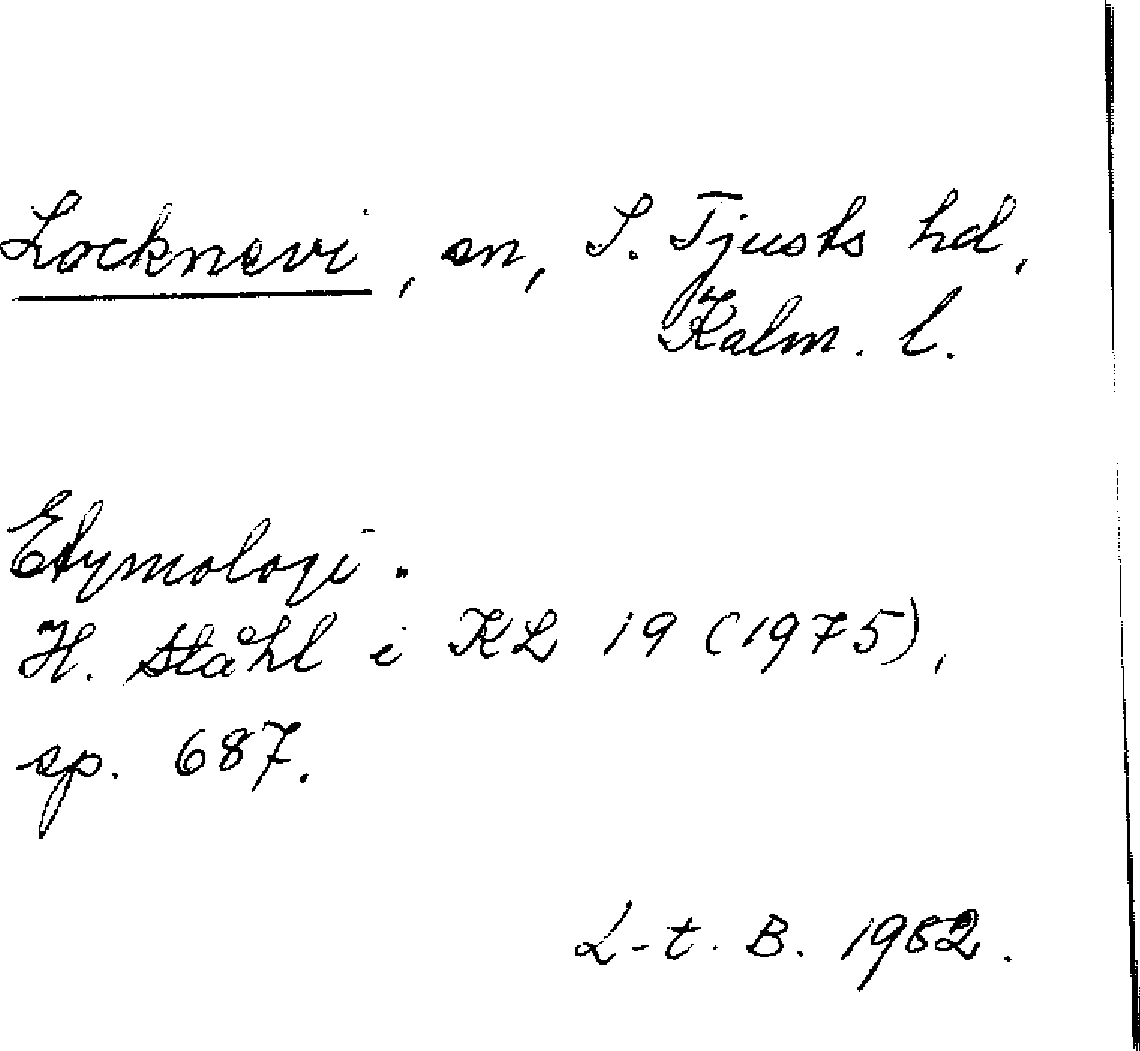 Locknevi, sn, S. Tjusts hd,
Kalm. l.
Etymologi.
H. Ståhl i KL 19 (1975),
sp. 687.
L-t. B. 1982.